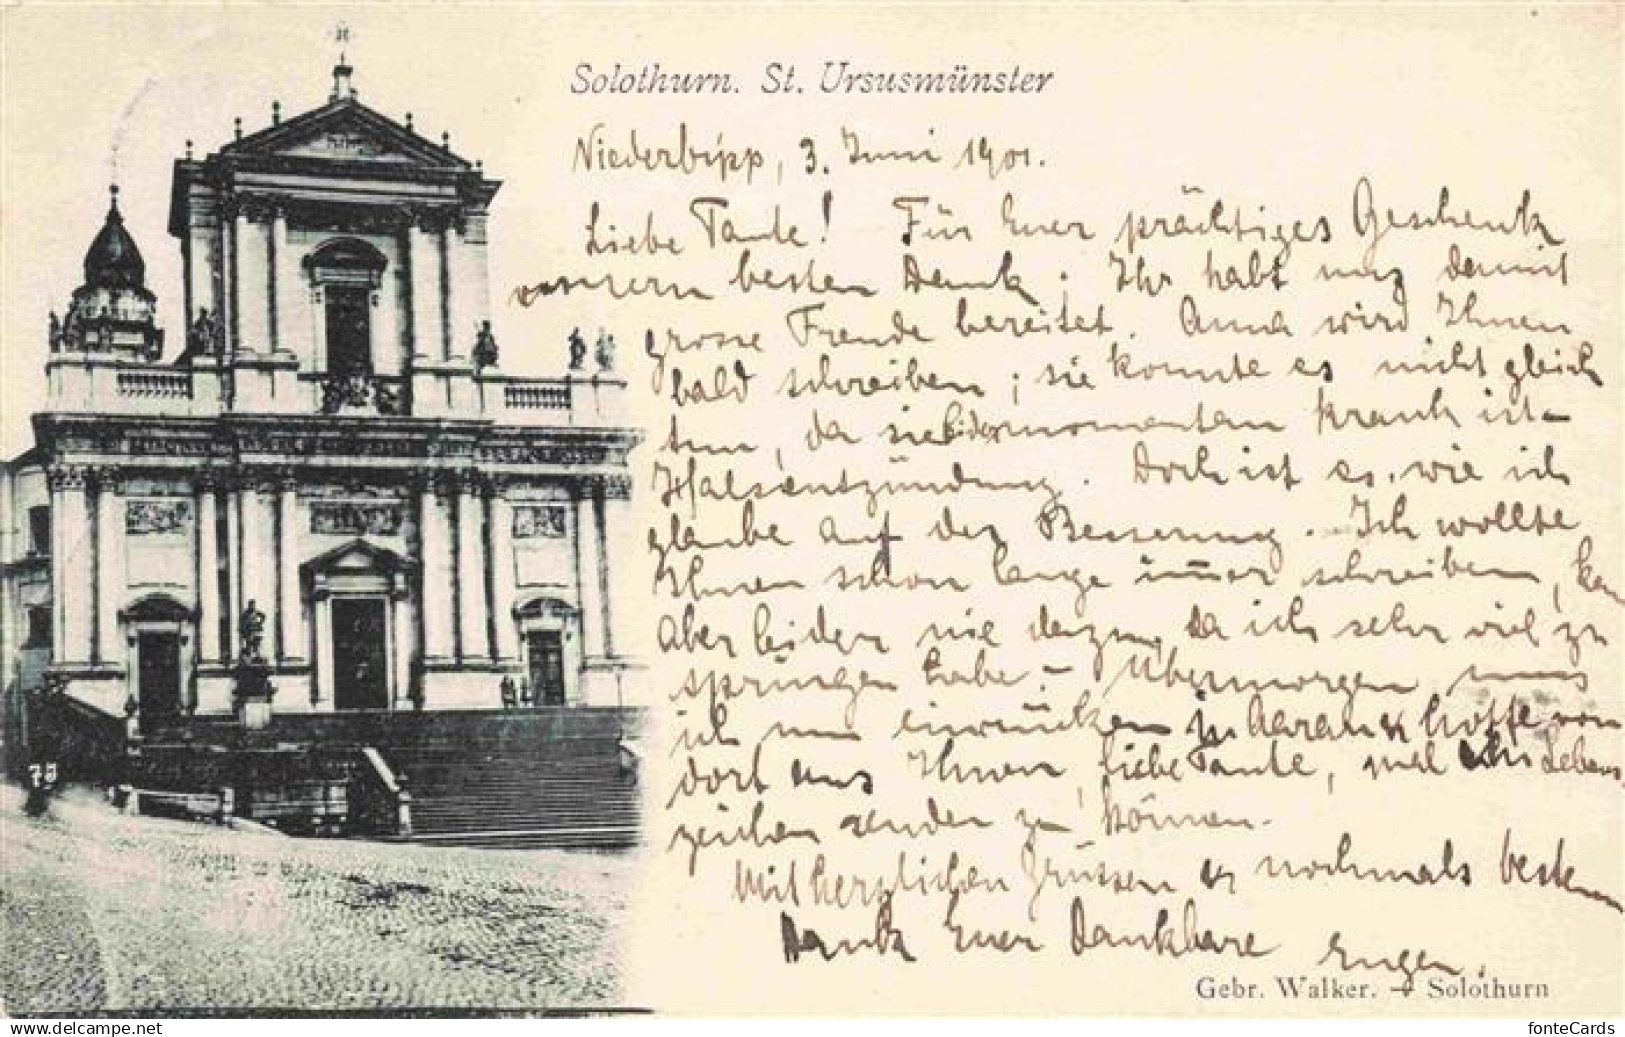 Solothurn. St. Ursusmünster
Niederbipp, 3. Juni 1901.
Liebe Tante! Für Euer prächtiges Geschenk
unsern besten Dank. Ihr habt uns damit
grosse Freude bereitet. Anna wird Ihnen
bald schreiben; sie konnte es nicht gleich
tun, da sie leider momentan krank ist -
Halsentzündung. Doch ist es, wie ich
glaube auf der Besserung. Ich wollte
Ihnen schon lange immer schreiben,
aber leider nie dazu, da ich sehr viel zu
springen habe. - Übermorgen muss
ich nun einrücken in Aarau & hoffe von
dort aus Ihnen, liebe Tante, mal ein Lebens
zeichen senden zu können.
Mit herzlichen Grüssen & nochmals besten
Dank Euer dankbare Eugen.
Gebr. Walker. - Solothurn
75
delcampe.net
fonteCards